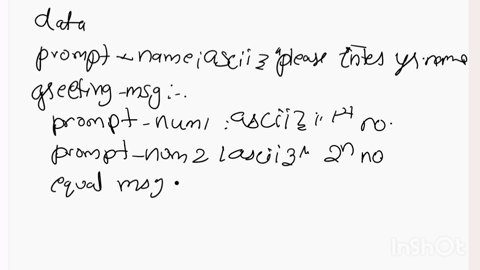 data
prompt-name: asciiz "please enter yr name
greeting-msg:..
prompt-num1 :asciiz " 1st no.
prompt-num2 :asciiz " 2n no
equal msg.
InShOt